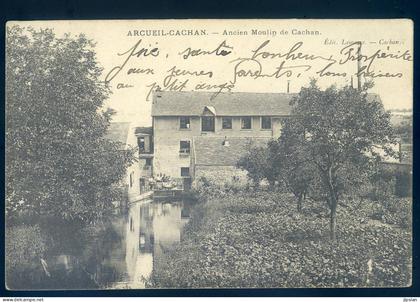 ARCUEIL-CACHAN. — Ancien Moulin de Cachan.
Édit. — Cachan.
Joie, santé bonheur Prospérité
aux jeunes parents bons baisers
au petit ange